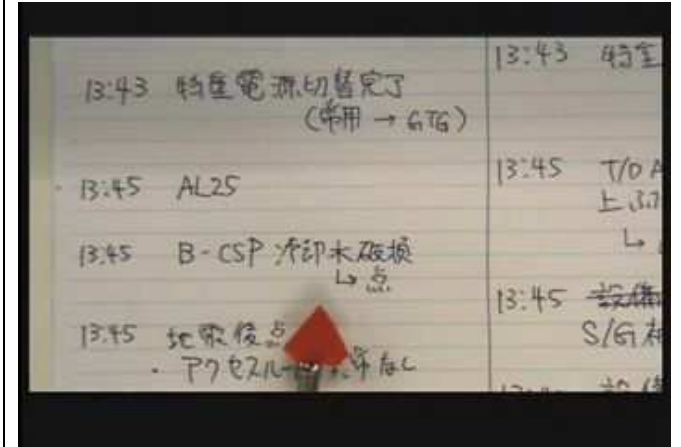 13:43 特重電源切替完了
(常用 → GTG)
13:45 AL25
13:45 B-CSP 冷却水破損
↳ 点
13:45 地震後点
・アクセスルー 異常なし
13:43 特重
13:45 T/D A
上ふた
↳
13:45 設備
S/G